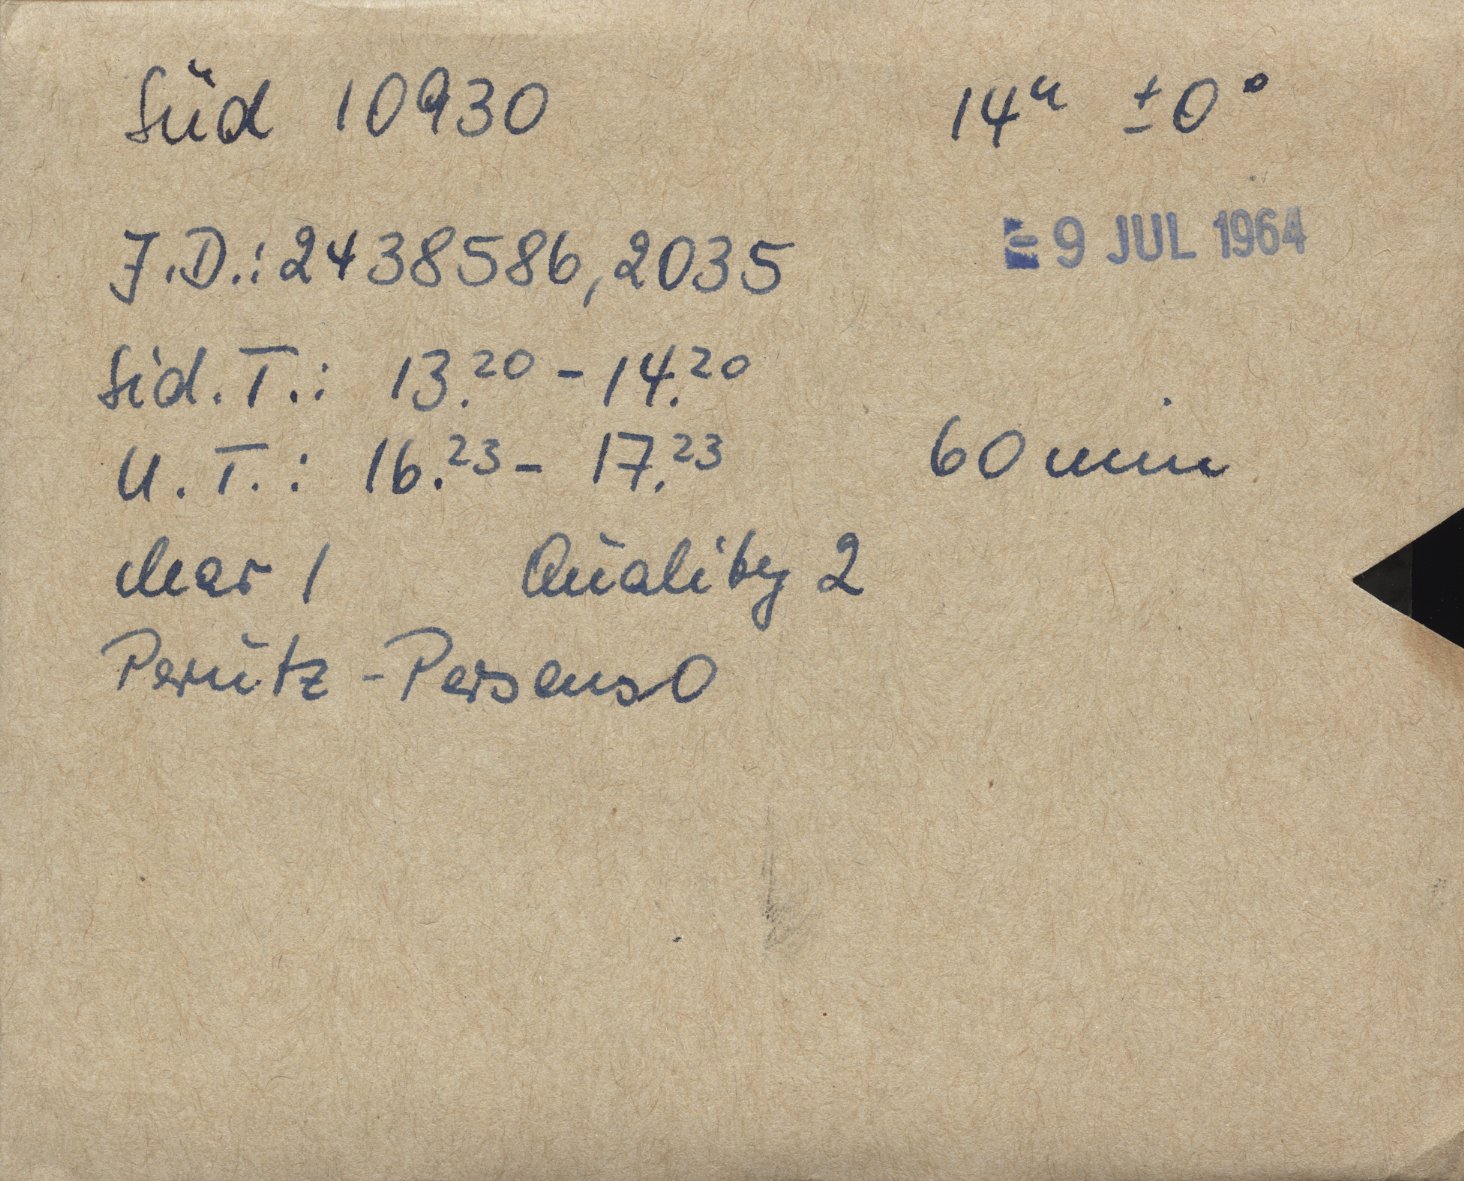 Süd 10930 14ʰ ±0°
9 JUL 1964
J.D.: 2438586,2035
Sid. T.: 13.²⁰ - 14.²⁰
U. T.: 16.²³ - 17.²³ 60 min
clear 1 Quality 2
Perutz - Persenso